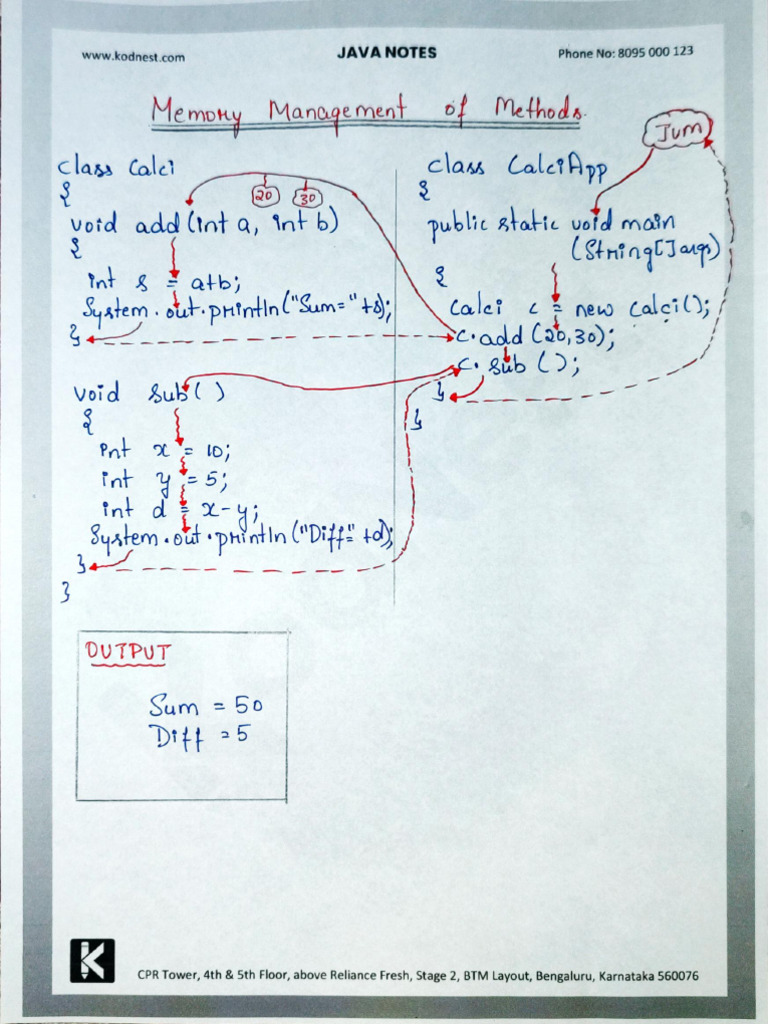 www.kodnest.com
JAVA NOTES
Phone No: 8095 000 123
Memory Management of Methods.
Jum
class Calci
{
20
30
void add(int a, int b)
{
int s = a+b;
System.out.println("Sum="+s);
}
void sub()
{
int x = 10;
int y = 5;
int d = x-y;
System.out.println("Diff="+d);
}
}
class CalciApp
{
public static void main
(String[]args)
{
Calci c = new Calci();
c.add(20,30);
c.sub();
}
}
OUTPUT
Sum = 50
Diff = 5
K
CPR Tower, 4th & 5th Floor, above Reliance Fresh, Stage 2, BTM Layout, Bengaluru, Karnataka 560076